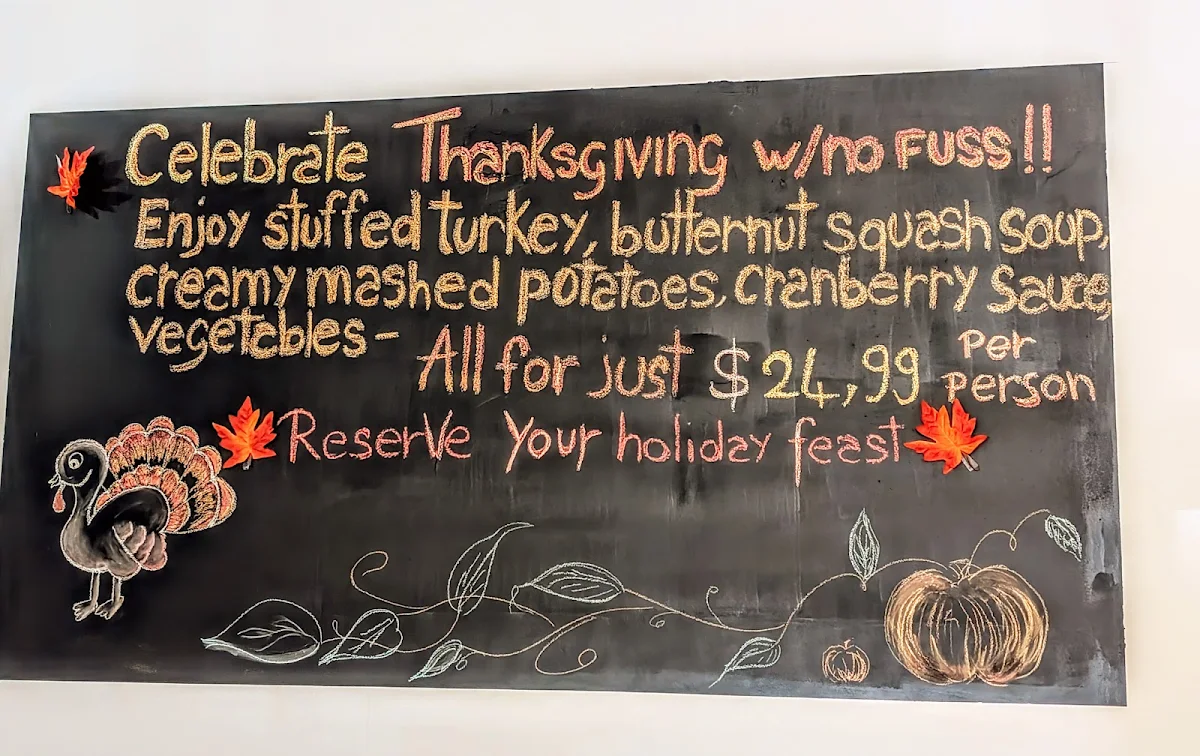 Celebrate Thanksgiving w/no FUSS!!
Enjoy stuffed turkey, butternut squash soup,
creamy mashed potatoes, cranberry sauce,
vegetables- All for just $24,99 per person
Reserve your holiday feast